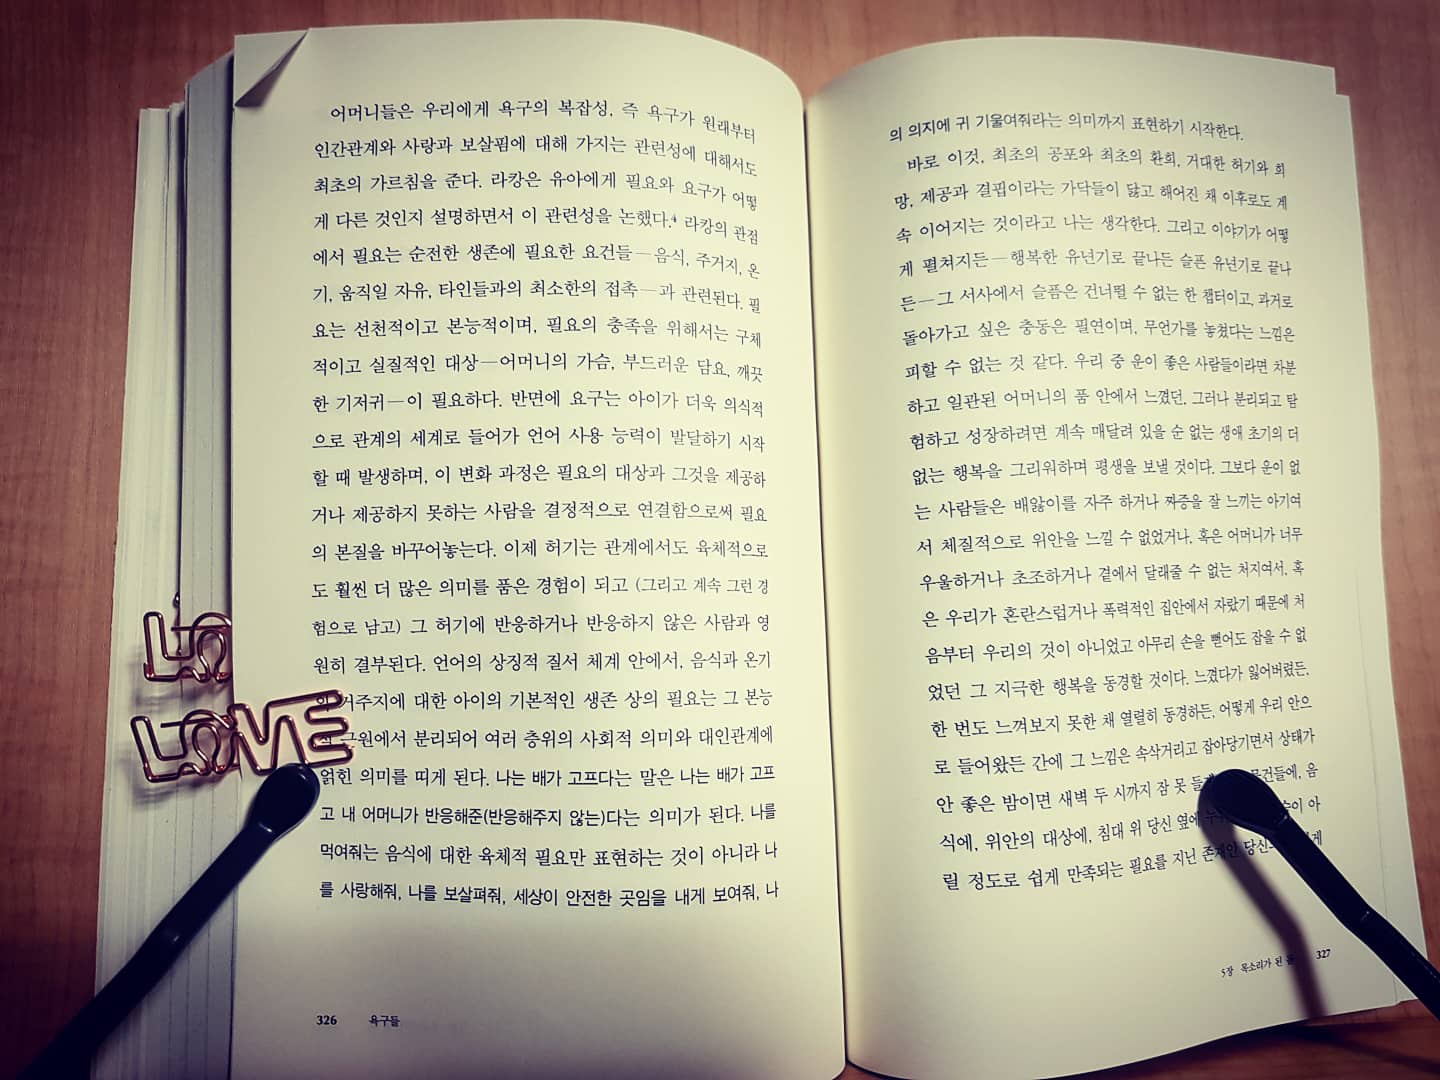 어머니들은 우리에게 욕구의 복잡성, 즉 욕구가 원래부터
인간관계와 사랑과 보살핌에 대해 가지는 관련성에 대해서도
최초의 가르침을 준다. 라캉은 유아에게 필요와 요구가 어떻
게 다른 것인지 설명하면서 이 관련성을 논했다.⁴ 라캉의 관점
에서 필요는 순전한 생존에 필요한 요건들—음식, 주거지, 온
기, 움직일 자유, 타인들과의 최소한의 접촉—과 관련된다. 필
요는 선천적이고 본능적이며, 필요의 충족을 위해서는 구체
적이고 실질적인 대상—어머니의 가슴, 부드러운 담요, 깨끗
한 기저귀—이 필요하다. 반면에 요구는 아이가 더욱 의식적
으로 관계의 세계로 들어가 언어 사용 능력이 발달하기 시작
할 때 발생하며, 이 변화 과정은 필요의 대상과 그것을 제공하
거나 제공하지 못하는 사람을 결정적으로 연결함으로써 필요
의 본질을 바꾸어놓는다. 이제 허기는 관계에서도 육체적으로
도 훨씬 더 많은 의미를 품은 경험이 되고 (그리고 계속 그런 경
험으로 남고) 그 허기에 반응하거나 반응하지 않은 사람과 영
원히 결부된다. 언어의 상징적 질서 체계 안에서, 음식과 온기
거주지에 대한 아이의 기본적인 생존 상의 필요는 그 본능
근원에서 분리되어 여러 층위의 사회적 의미와 대인관계에
얽힌 의미를 띠게 된다. 나는 배가 고프다는 말은 나는 배가 고프
고 내 어머니가 반응해준(반응해주지 않는)다는 의미가 된다. 나를
먹여줘는 음식에 대한 육체적 필요만 표현하는 것이 아니라 나
를 사랑해줘, 나를 보살펴줘, 세상이 안전한 곳임을 내게 보여줘, 나
326 욕구들
LOVE
의 의지에 귀 기울여줘라는 의미까지 표현하기 시작한다.
바로 이것, 최초의 공포와 최초의 환희, 거대한 허기와 희
망, 제공과 결핍이라는 가닥들이 닳고 해어진 채 이후로도 계
속 이어지는 것이라고 나는 생각한다. 그리고 이야기가 어떻
게 펼쳐지든—행복한 유년기로 끝나든 슬픈 유년기로 끝나
든—그 서사에서 슬픔은 건너뛸 수 없는 한 챕터이고, 과거로
돌아가고 싶은 충동은 필연이며, 무언가를 놓쳤다는 느낌은
피할 수 없는 것 같다. 우리 중 운이 좋은 사람들이라면 차분
하고 일관된 어머니의 품 안에서 느꼈던, 그러나 분리되고 탐
험하고 성장하려면 계속 매달려 있을 순 없는 생애 초기의 더
없는 행복을 그리워하며 평생을 보낼 것이다. 그보다 운이 없
는 사람들은 배앓이를 자주 하거나 짜증을 잘 느끼는 아기여
서 체질적으로 위안을 느낄 수 없었거나, 혹은 어머니가 너무
우울하거나 초조하거나 곁에서 달래줄 수 없는 처지여서, 혹
은 우리가 혼란스럽거나 폭력적인 집안에서 자랐기 때문에 처
음부터 우리의 것이 아니었고 아무리 손을 뻗어도 잡을 수 없
었던 그 지극한 행복을 동경할 것이다. 느꼈다가 잃어버렸든,
한 번도 느껴보지 못한 채 열렬히 동경하든, 어떻게 우리 안으
로 들어왔든 간에 그 느낌은 속삭이고 잡아당기면서 상태가
안 좋은 밤이면 새벽 두 시까지 잠 못 음
식에, 위안의 대상에, 침대 위 당신 옆에 아
릴 정도로 쉽게 만족되는 필요를 지닌 존재인 게
5장 목소리가 된 327